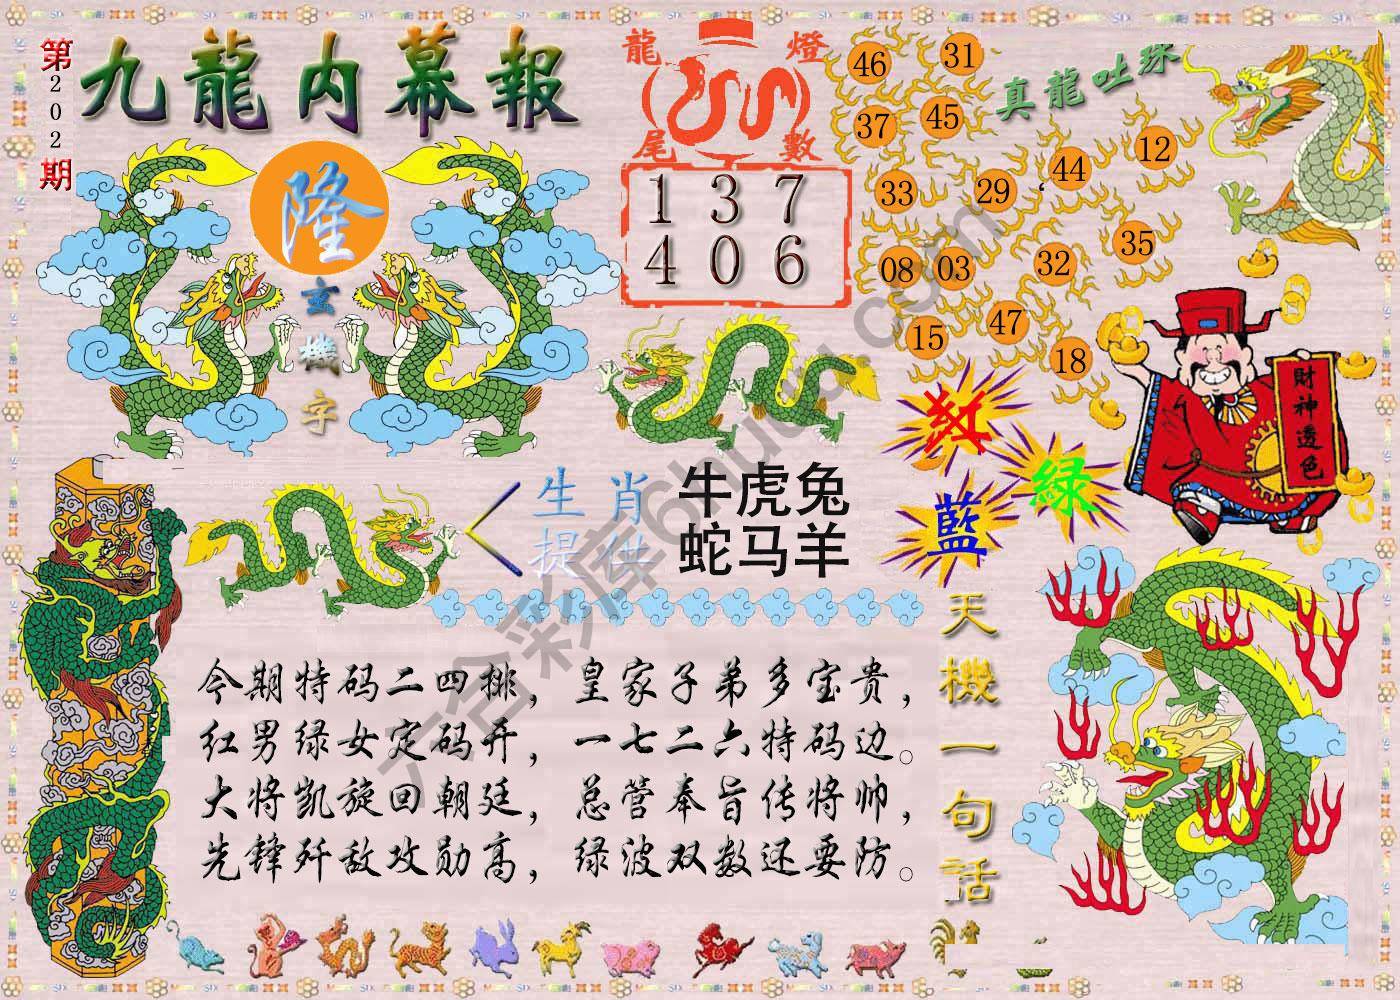 第202期
九龍内幕報
隆
玄機字
龍燈
尾數
1 3 7
4 0 6
真龍吐珠
46 31
37 45
33 29 44 12
08 03 32 35
15 47 18
財神透色
紅
綠
藍
生肖
提供
牛虎兔
蛇马羊
天機一句話
今期特码二四排，皇家子弟多宝贵，
红男绿女定码开，一七二六特码边。
大将凯旋回朝廷，总管奉旨传将帅，
先锋歼敌攻勋高，绿波双数还要防。
六合彩库6huuu.com